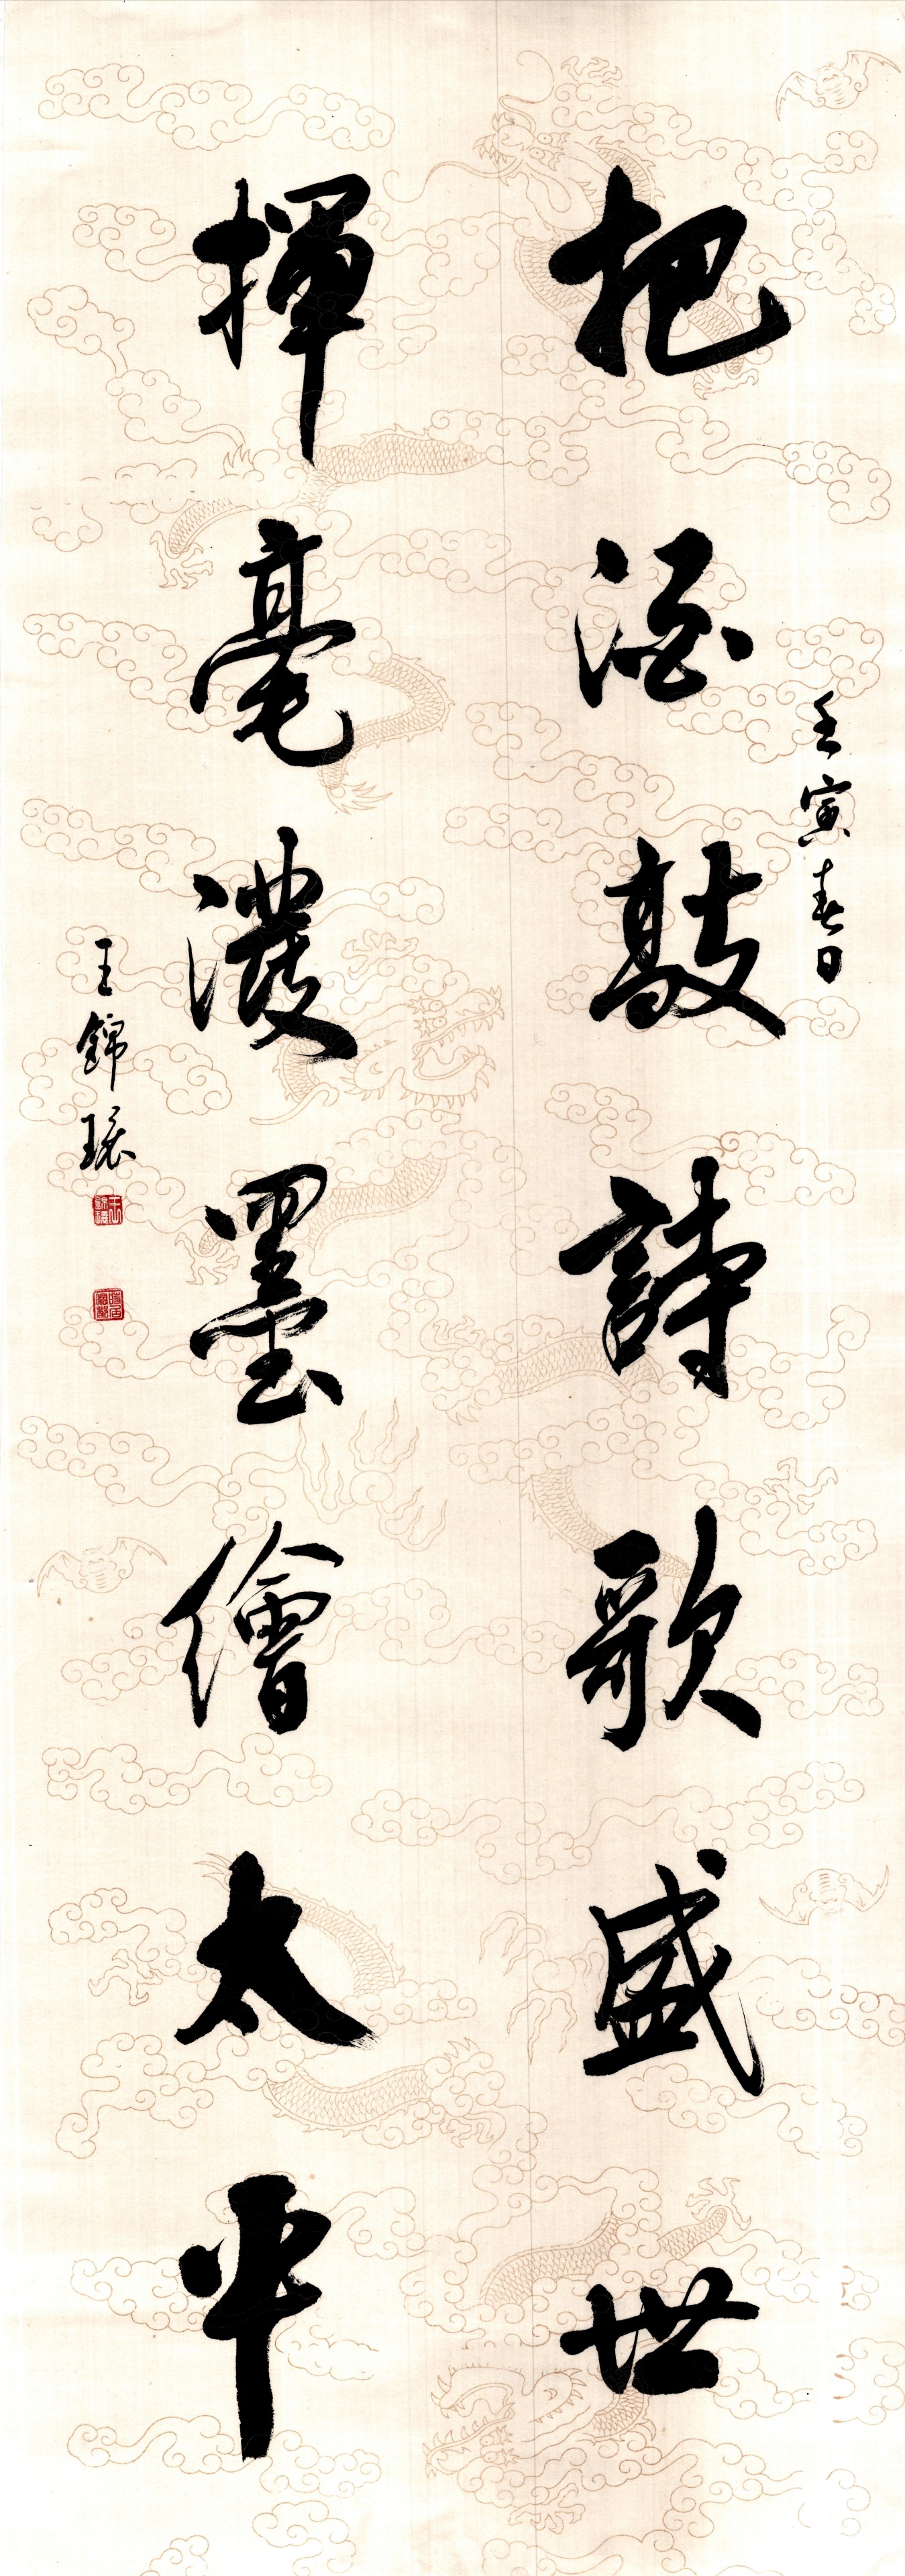 壬寅春日
把酒敲詩歌盛世
揮毫潑墨繪太平
王錦